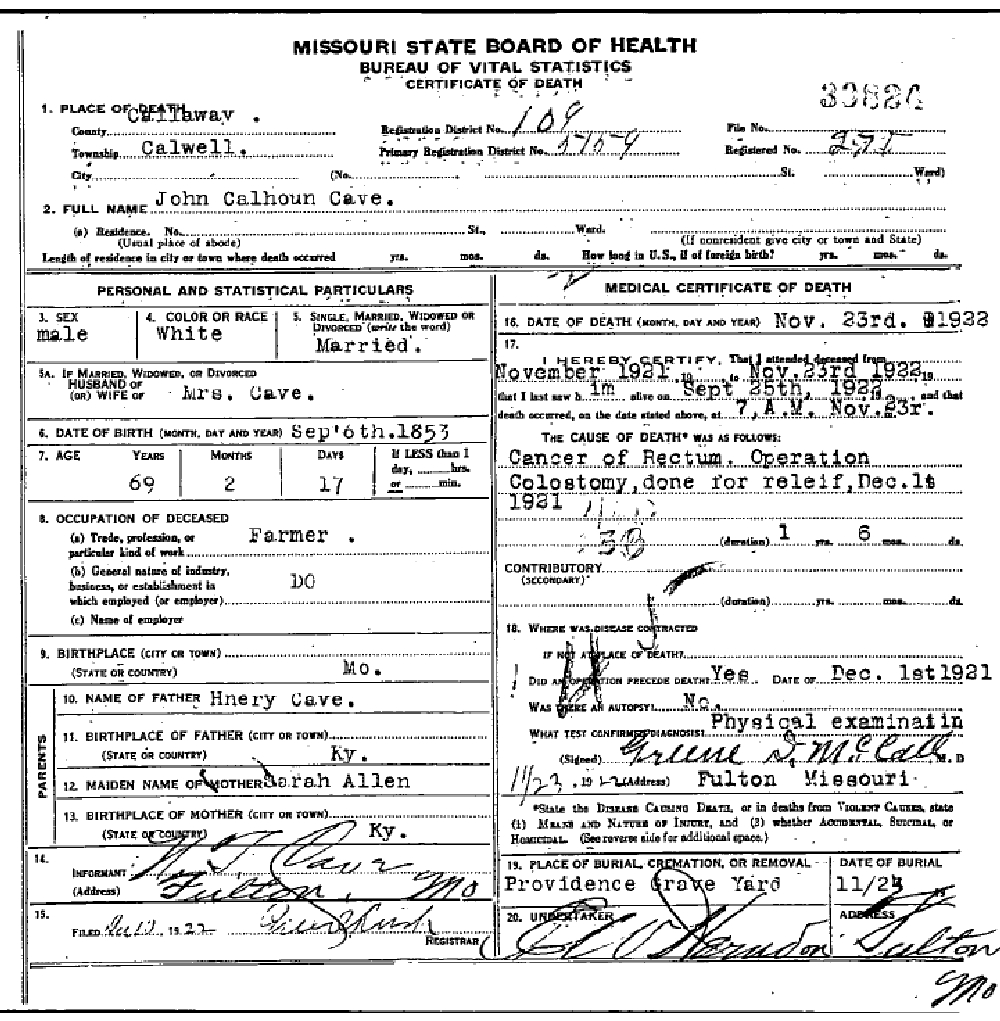 MISSOURI STATE BOARD OF HEALTH
BUREAU OF VITAL STATISTICS
CERTIFICATE OF DEATH
1. PLACE OF DEATH
County Callaway . Registration District No. 109 File No.
Township Calwell. Primary Registration District No. Registered No.
City (No. St. Ward)
2. FULL NAME John Calhoun Cave.
(a) Residence. No. St., Ward.
(Usual place of abode) (If nonresident give city or town and State)
Length of residence in city or town where death occurred yrs. mos. ds. How long in U.S., if of foreign birth? yrs. mos. ds.
PERSONAL AND STATISTICAL PARTICULARS
3. SEX male
4. COLOR OR RACE White
5. SINGLE, MARRIED, WIDOWED OR
DIVORCED (write the word)
Married.
5A. IF MARRIED, WIDOWED, OR DIVORCED
HUSBAND OF
(OR) WIFE OF Mrs. Cave.
6. DATE OF BIRTH (MONTH, DAY AND YEAR) Sep'6th.1853
7. AGE YEARS MONTHS DAYS If LESS than 1
day, hrs.
69 2 17 or min.
8. OCCUPATION OF DECEASED
(a) Trade, profession, or
particular kind of work Farmer .
(b) General nature of industry,
business, or establishment in
which employed (or employer) DO
(c) Name of employer
9. BIRTHPLACE (CITY OR TOWN)
(STATE OR COUNTRY) Mo.
PARENTS
10. NAME OF FATHER Hnery Cave.
11. BIRTHPLACE OF FATHER (CITY OR TOWN)
(STATE OR COUNTRY) Ky.
12. MAIDEN NAME OF MOTHER Sarah Allen
13. BIRTHPLACE OF MOTHER (CITY OR TOWN)
(STATE OR COUNTRY) Ky.
14.
INFORMANT Cave
(Address) Fulton, Mo
15.
FILED 1922
REGISTRAR
MEDICAL CERTIFICATE OF DEATH
16. DATE OF DEATH (MONTH, DAY AND YEAR) Nov. 23rd. 1922
17.
I HEREBY CERTIFY, That I attended deceased from
November 1921 19 to Nov.23rd 1922, 19
that I last saw h im alive on Sept 25th, 1922, and that
death occurred, on the date stated above, at 7,A.M. Nov.23r.
THE CAUSE OF DEATH* WAS AS FOLLOWS:
Cancer of Rectum. Operation
Colostomy,done for releif,Dec.1s
1921
(duration) 1 yrs. 6 mos. ds.
CONTRIBUTORY
(SECONDARY)
(duration) yrs. mos. ds.
18. WHERE WAS DISEASE CONTRACTED
IF NOT AT PLACE OF DEATH?
DID AN OPERATION PRECEDE DEATH? Yes. DATE OF Dec. 1st 1921
WAS THERE AN AUTOPSY? No.
WHAT TEST CONFIRMED DIAGNOSIS? Physical examinatin
(Signed) Greene D. McCall M.D
11/23, 1922 (Address) Fulton Missouri
*State the DISEASE CAUSING DEATH, or in deaths from VIOLENT CAUSES, state
(1) MEANS AND NATURE OF INJURY, and (2) whether ACCIDENTAL, SUICIDAL, or
HOMICIDAL. (See reverse side for additional space.)
19. PLACE OF BURIAL, CREMATION, OR REMOVAL DATE OF BURIAL
Providence Grave Yard 11/24
20. UNDERTAKER ADDRESS
Herndon Fulton
Mo